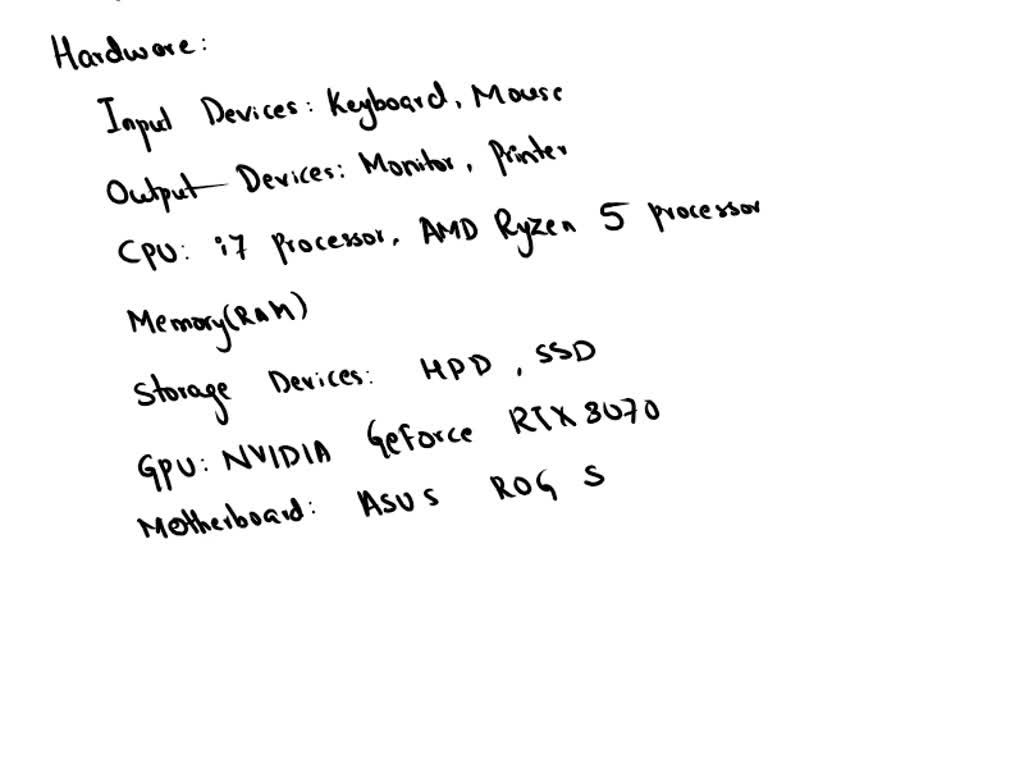 Hardware:
Input Devices: Keyboard, Mouse
Output Devices: Monitor, Printer
CPU: i7 processor, AMD Ryzen 5 processor
Memory(RAM)
Storage Devices: HDD, SSD
GPU: NVIDIA GeForce RTX 3070
Motherboard: ASUS ROG S